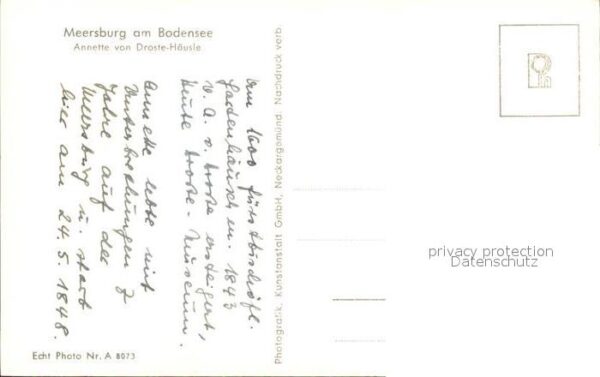 Meersburg am Bodensee
Annette von Droste-Häusle
um 1600 fürstbischöfl.
Gartenhäuschen. 1843
v. A. v. Droste ersteigert,
heute Droste-Museum.
Annette lebte mit
Unterbrechungen 7
Jahre auf der
Meersburg u. starb
hier am 24.5.1848.
Echt Photo Nr. A 8073
Photografik, Kunstanstalt GmbH, Neckargemünd. Nachdruck verb.
privacy protection
Datenschutz